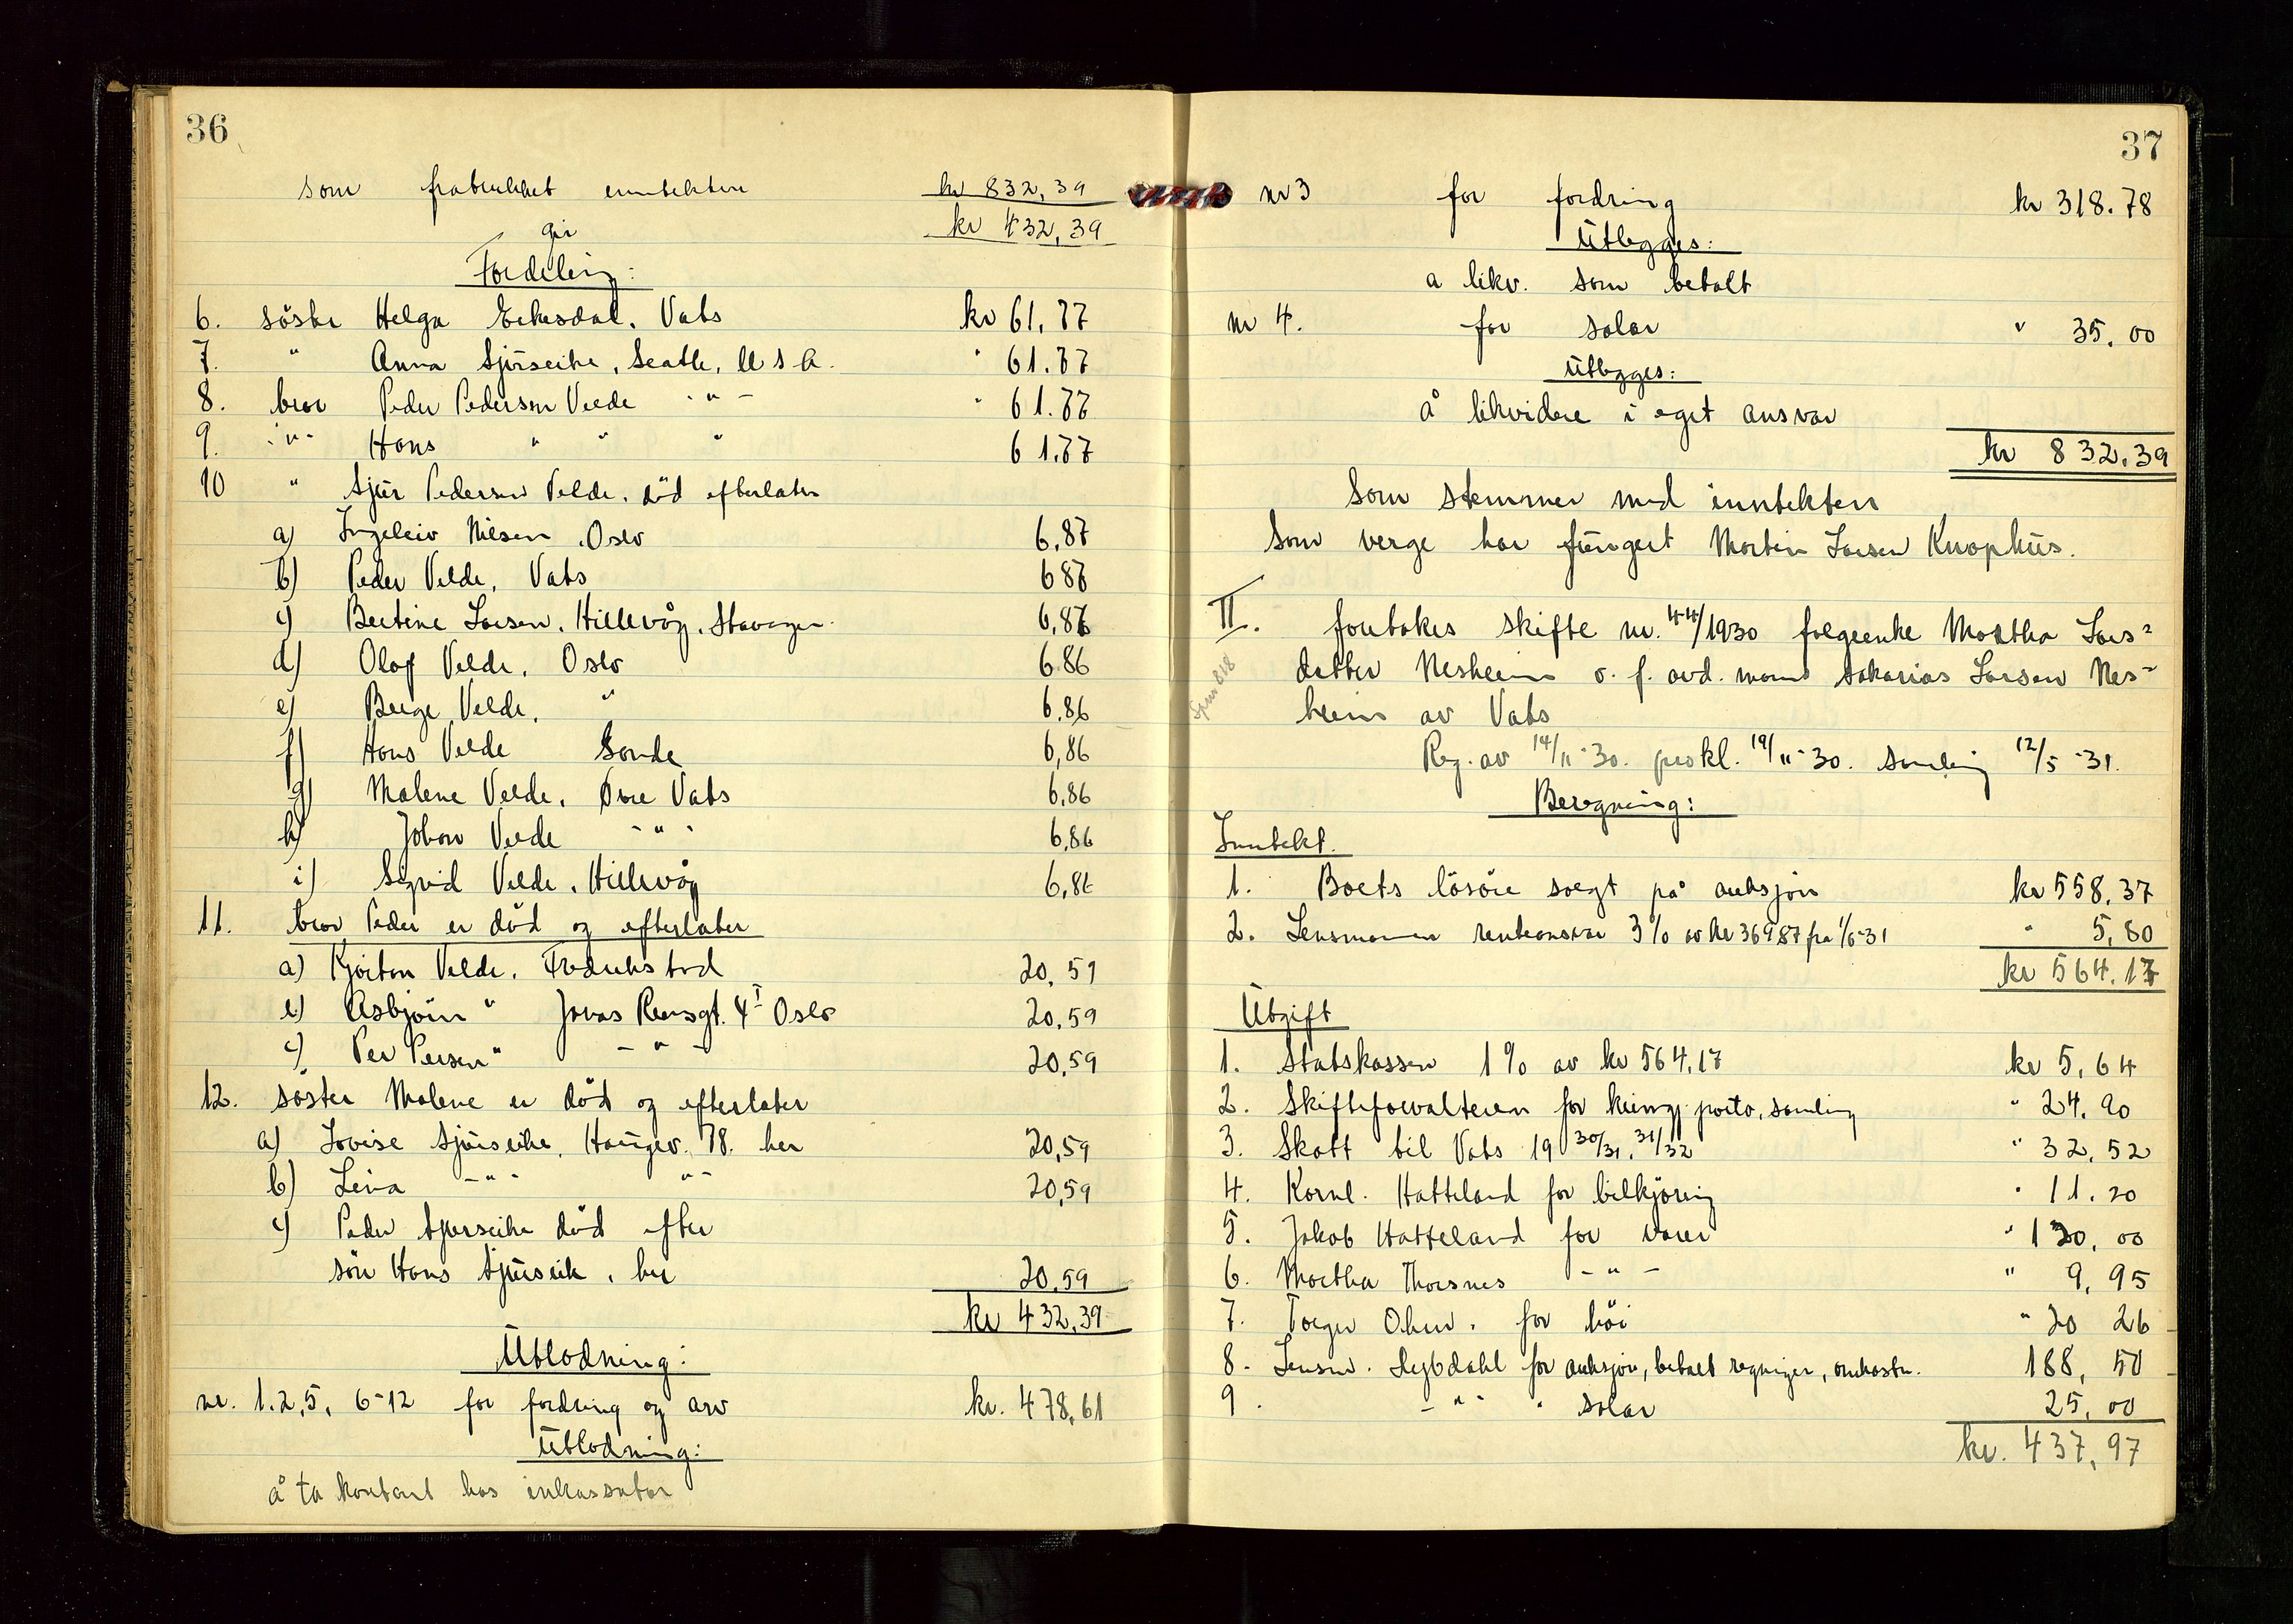 36
som fratrukket inntekten kr 832,39
gir kr 432,39
Fordeling:
6. söster Helga Eikesdal, Vats kr 61,77
7. " Anna Sjurseike, Seatle, U S A. " 61.77
8. bror Peder Pedersen Velde - " - " 61.77
9. - " - Hans " " " 61.77
10 " Sjur Pedersen Velde, död efterlater
a) Ingeleiv Nilsen, Oslo 6,87
b) Peder Velde, Vats 6 87
c) Bertine Larsen, Hillevåg, Stavanger 6,86
d) Olaf Velde, Oslo 6.86
e) Berge Velde, " 6.86
f) Hans Velde Sande 6,86
g) Malene Velde, Øvre Vats 6,86
h) Johan Velde - " - 6,86
i) Sigvid Velde, Hillevåg 6,86
11. bror Peder er död og efterlater
a) Kjartan Velde, Fredrikstad 20,59
b) Asbjörn " Jonas Reinsgt. 4 I Oslo 20,59
c) Per Persen " - " - 20,59
12. söster Malene er död og efterlater
a) Lovise Sjurseike, Haugev. 78. her 20,59
b) Lena - " - " - 20,59
c) Peder Sjurseike död efter
sön Hans Sjurseik, her 20,59
kr 432,39
Utlodning:
nr. 1.2,5, 6-12 for fordring og arv kr. 478,61
Utlodning:
å ta kontant hos inkassator
37
nr 3 for fordring kr 318.78
Utlegges:
a likv. som betalt
nr 4. for salar " 35,00
Utlegges:
å likvidere i eget ansvar
kr 832,39
Som stemmer med inntekten
Som verge har fungert Martin Larsen Knaphus.
II. foretakes skifte nr. 44/1930 felgeenke Martha Lars-
datter Nesheim o. f. avd. mann Sakarias Larsen Nes-
heim av Vats
Reg. av 14/11-30. prokl. 19/11-30. samling 12/5-31.
Beregning:
Inntekt.
1. Boets lösöre solgt på auksjon kr 558,37
2. Lensmannen renteansvar 3% av kr 369 87 fra 1/6-31 " 5,80
kr 564.17
Utgift
1. Statskassen 1% av kr 564,17 kr 5,64
2. Skifteforvalteren for kungj. porto, samling " 24,90
3. Skatt til Vats 19 30/31, 31/32 " 32,52
4. Kornl. Hatteland for bilkjöring " 11.20
5. Jakob Hatteland for varer " 120,00
6. Martha Thorsnes - " - " 9,95
7. Torger Olsen. for höi " 20 26
8. Lensm. Lybdahl for auksjon, betalt regninger, omkostn. 188,50
9. - " - " salar 25,00
kr. 437,97